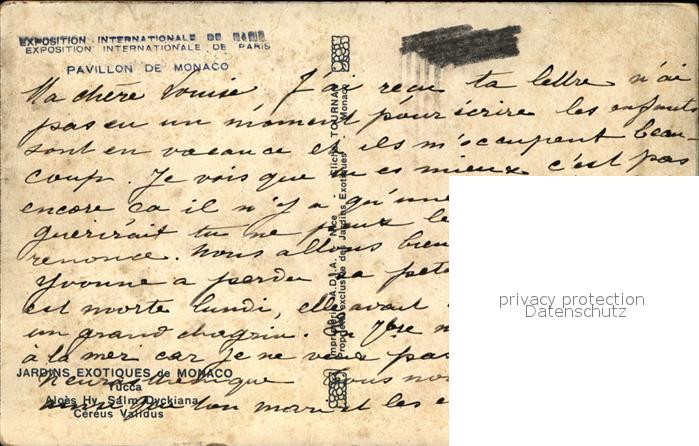 EXPOSITION INTERNATIONALE DE PARIS
EXPOSITION INTERNATIONALE DE PARIS
PAVILLON DE MONACO
Ma chère Louise J'ai reçu ta lettre n'ai
pas eu un moment pour écrire les enfants
sont en vacance et ils m'occupent beau
coup. Je vois que tu es mieux c'est pas
encore ca il n'y a qu'une
guerirait tu ne peux le
renonce. nous allons bien
Yvonne a perdu sa pete
est morte lundi, elle avait
un grand chagrin. 7bre
à la mer car je ne veux pas
neurasthenique nous
que ton mari et les
Imprimerie A.D.I.A. - Nice - TOURNAY
Propriété exclusive des Jardins Exotiques - Monaco
JARDINS EXOTIQUES de MONACO
Yucca
Aloès Hy. Salm Dyckiana
Céréus Validus
privacy protection
Datenschutz